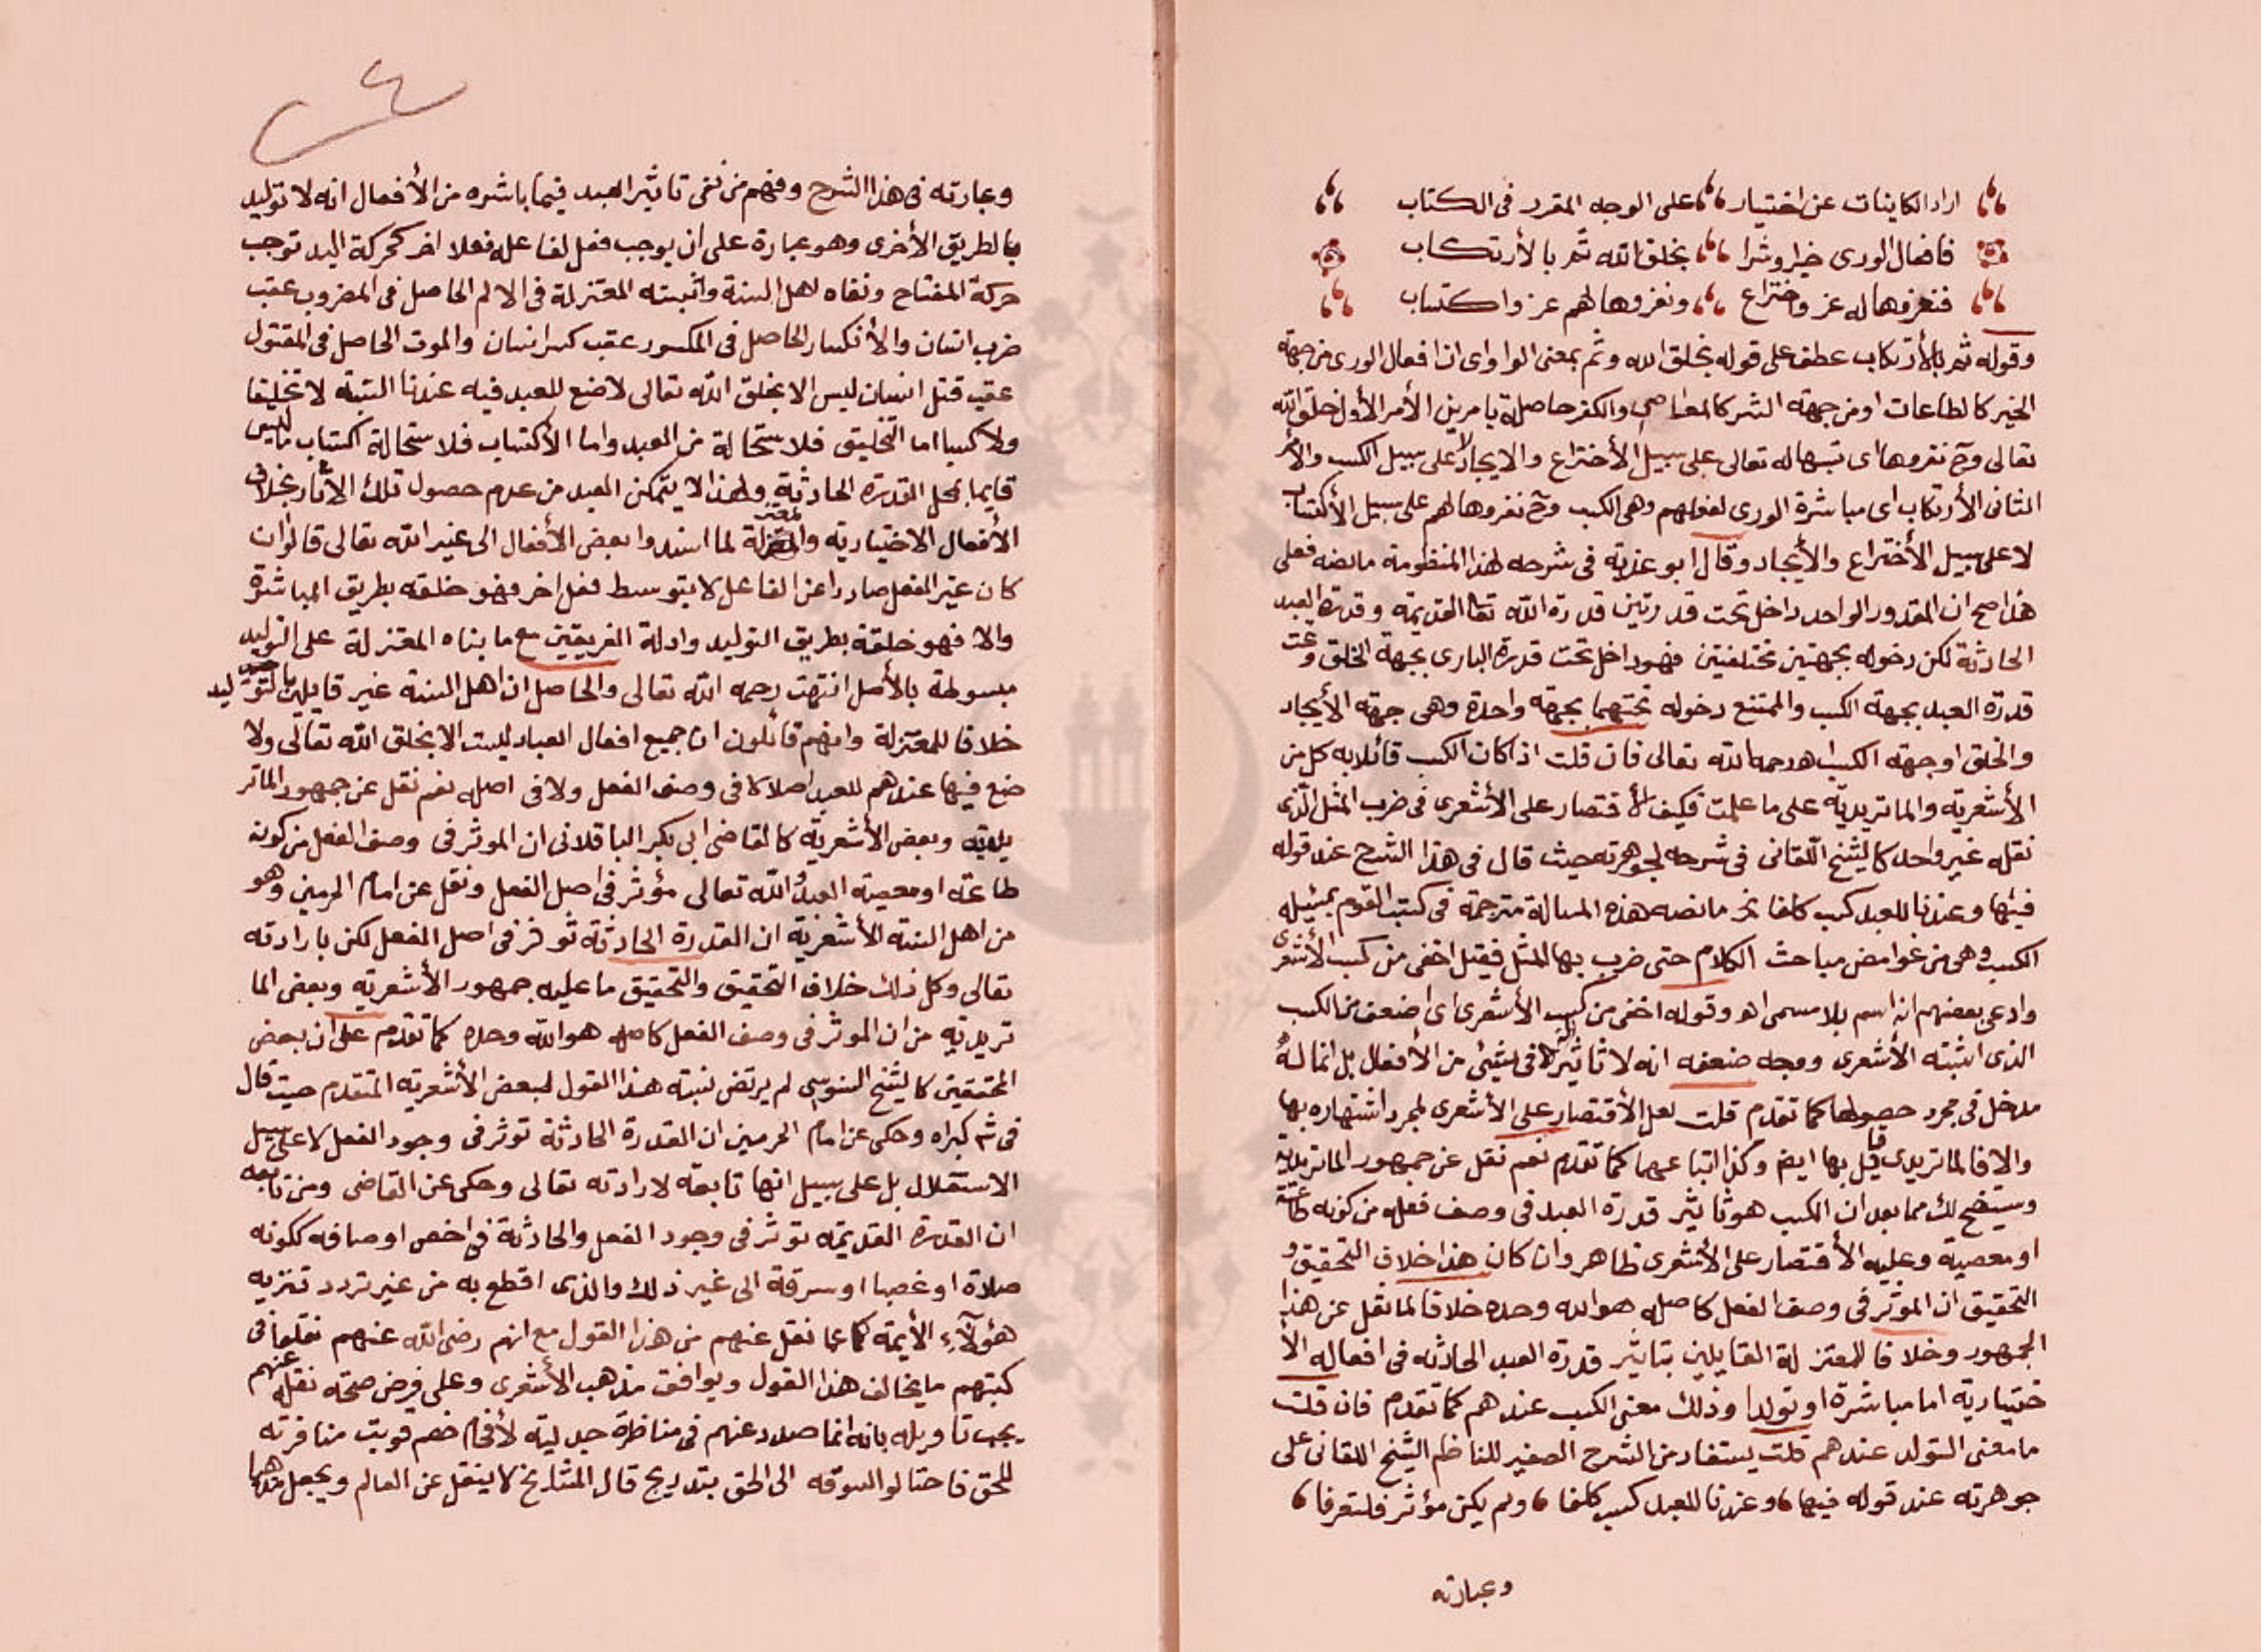 اراد الكاينات عن اختيار على الوجه المقرر فى الكتاب
فافعال الورى خيرا وشرا بخلق الله ثم بالأرتكاب
فنعزوها له عز واختراع ونعزوها لهم عز واكتساب
وقوله ثم بالأرتكاب عطف على قوله بخلق الله وثم بمعنى الواو اى ان افعال الورى من جهة
الخير كالطاعات او من جهة الشر كالمعاصى والكفر حاصلة بامرين الأمر الأول خلق الله
تعالى وح نعزوها اى نسبها له تعالى على سبيل الأختراع والايجاد لا على سبيل الكسب والأمر
الثانى الأرتكاب اى مباشرة الورى لفعلهم وهى الكسب وح نعزوها لهم على سبيل الأكتساب
لا على سبيل الأختراع والأيجاد وقال ابو عذبة فى شرحه لهذا المنظومة ما نصه فعلى
هذا صح ان المقدور الواحد داخل تحت قدرتين قدرة الله تعا القديمة وقدرة العبد
الحادثة لكن دخوله بجهتين مختلفتين فهو داخل تحت قدرة البارى بجهة الخلق وتحت
قدرة العبد بجهة الكسب والممتنع دخوله تحتهما بجهة واحدة وهى جهة الأيجاد
والخلق او جهة الكسب اهـ رحمه الله تعالى فان قلت اذا كان الكسب قائلا به كل من
الأشعرية والماتريدية على ما علمت فكيف الأقتصار على الأشعرى فى ضرب المثل الذى
نقله غير واحد كالشيخ اللقانى فى شرحه لجوهرته حيث قال فى هذا الشرح عند قوله
فيها وعندنا للعبد كسب كلفا الخ ما نصه هذه المسالة مترجمة فى كتب القوم بمسئلة
الكسب وهى من غوامض مباحث الكلام حتى ضرب بها المثل فقيل اخفى من كسب الأشعرى
وادعى بعضهم انه اسم بلا مسمى اهـ وقوله اخفى من كسب الأشعرى اى اضعف من الكسب
الذى اثبته الأشعرى ووجه ضعفه انه لا تاثير له فى شيئ من الأفعال بل انما له
مدخل فى مجرد حصولها كما تقدم قلت لعل الأقتصار على الأشعرى لمجرد اشتهاره بها
والا فالماتريدى قايل بها ايض وكذا اتباعهما كما تقدم نعم نقل عن جمهور الماتريدية
وسيتضح لك مما بعد ان الكسب هو تاثير قدرة العبد فى وصف فعله من كونه طاعة
او معصية وعليه الأقتصار على الأشعرى ظاهر وان كان هذا خلاف التحقيق و
التحقيق ان الموثر فى وصف الفعل كاصله هو الله وحده خلافا لما نقل عن هذا
الجمهور وخلافا للمعتزلة القايلين بتاثير قدرة العبد الحادثه فى افعاله الأ
ختيارية اما مباشرة او تولدا وذلك معنى الكسب عندهم كما تقدم فان قلت
ما معنى التولد عندهم قلت يستفاد من الشرح الصغير للناظم الشيخ اللقانى على
جوهرته عند قوله فيها وعندنا للعبد كسب كلفا ولم يكن مؤثر فلتعرفا
وعبارته
وعبارته فى هذا الشرح وفهم من نفى تاثير العبد فيما باشره من الأفعال انه لا توليد
بالطريق الأخرى وهو عبارة على ان يوجب فعل لفاعله فعلا اخر كحركة اليد توجب
حركة المفتاح ونفاه اهل السنة واثبته المعتزلة فى الالم الحاصل فى المضروب عقب
ضرب انسان والأنكسار الحاصل فى المكسور عقب كسر انسان والموت الحاصل فى المقتول
عقب قتل انسان ليس الا بخلق الله تعالى لا صنع للعبد فيه عندنا البتة لا تخليقا
ولا كسبا اما التخليق فلاستحالة من العبد واما الأكتساب فلاستحالة اكتساب ما ليس
قايما بمحل القدرة الحادثة ولهذا لا يتمكن العبد من عدم حصول تلك الأثار بخلاف
الأفعال الاختيارية والمعتزلة لما اسندوا بعض الأفعال الى غير الله تعالى قالوا ان
كان غير الفعل صادرا عن الفاعل لا بتوسط فعل اخر فهو خلقه بطريق المباشرة
والا فهو خلقة بطريق التوليد وادلة الفريقين مع ما بناه المعتزلة على التوليد
مبسوطة بالأصل انتهت رحمه الله تعالى والحاصل ان اهل السنة غير قايلين بالتوليد
خلافا للمعتزلة وانهم قائلون ان جميع افعال العباد ليست الا بخلق الله تعالى ولا
صنع فيها عندهم للعبد اصلا لا فى وصف الفعل ولا فى اصله نعم نقل عن جمهور الماتر
يدية وبعض الأشعرية كالقاضى ابى بكر الباقلانى ان الموثر فى وصف الفعل من كونه
طاعة او معصية العبد والله تعالى مؤثر فى اصل الفعل ونقل عن امام الحرمين وهو
من اهل السنة الأشعرية ان القدرة الحادثة توثر فى اصل الفعل لكن بارادته
تعالى وكل ذلك خلاف التحقيق والتحقيق ما عليه جمهور الأشعرية وبعض الما
تريدية من ان الموثر فى وصف الفعل كاصله هو الله وحده كما تقدم على ان بعض
المحققين كالشيخ السنوسى لم يرتض نسبة هذا القول لبعض الأشعرية المتقدم حيث قال
فى شر كبراه وحكى عن امام الحرمين ان القدرة الحادثة توثر فى وجود الفعل لا على سبيل
الاستقلال بل على سبيل انها تابعة لارادته تعالى وحكى عن القاضى ومن تابعه
ان القدرة القديمة توثر فى وجود الفعل والحادثة فى اخص اوصافه ككونه
صلاة او غصبا او سرقة الى غير ذلك والذى اقطع به من غير تردد تنزيه
هؤلآء الأيمة كما عما نقل عنهم من هذا القول مع انهم رضى الله عنهم نقلوا فى
كتبهم ما يخالف هذا القول ويوافق مذهب الأشعرى وعلى فرض صحة نقله عنهم
يجب تاويله بانه انما صدر عنهم فى مناظرة جدلية لأفحام خصم قويت منافرته
للحق فاحتالوا لسوقه الى الحق بتدريج قال المشايخ لا ينقل عن العالم ويجعل مذهبا